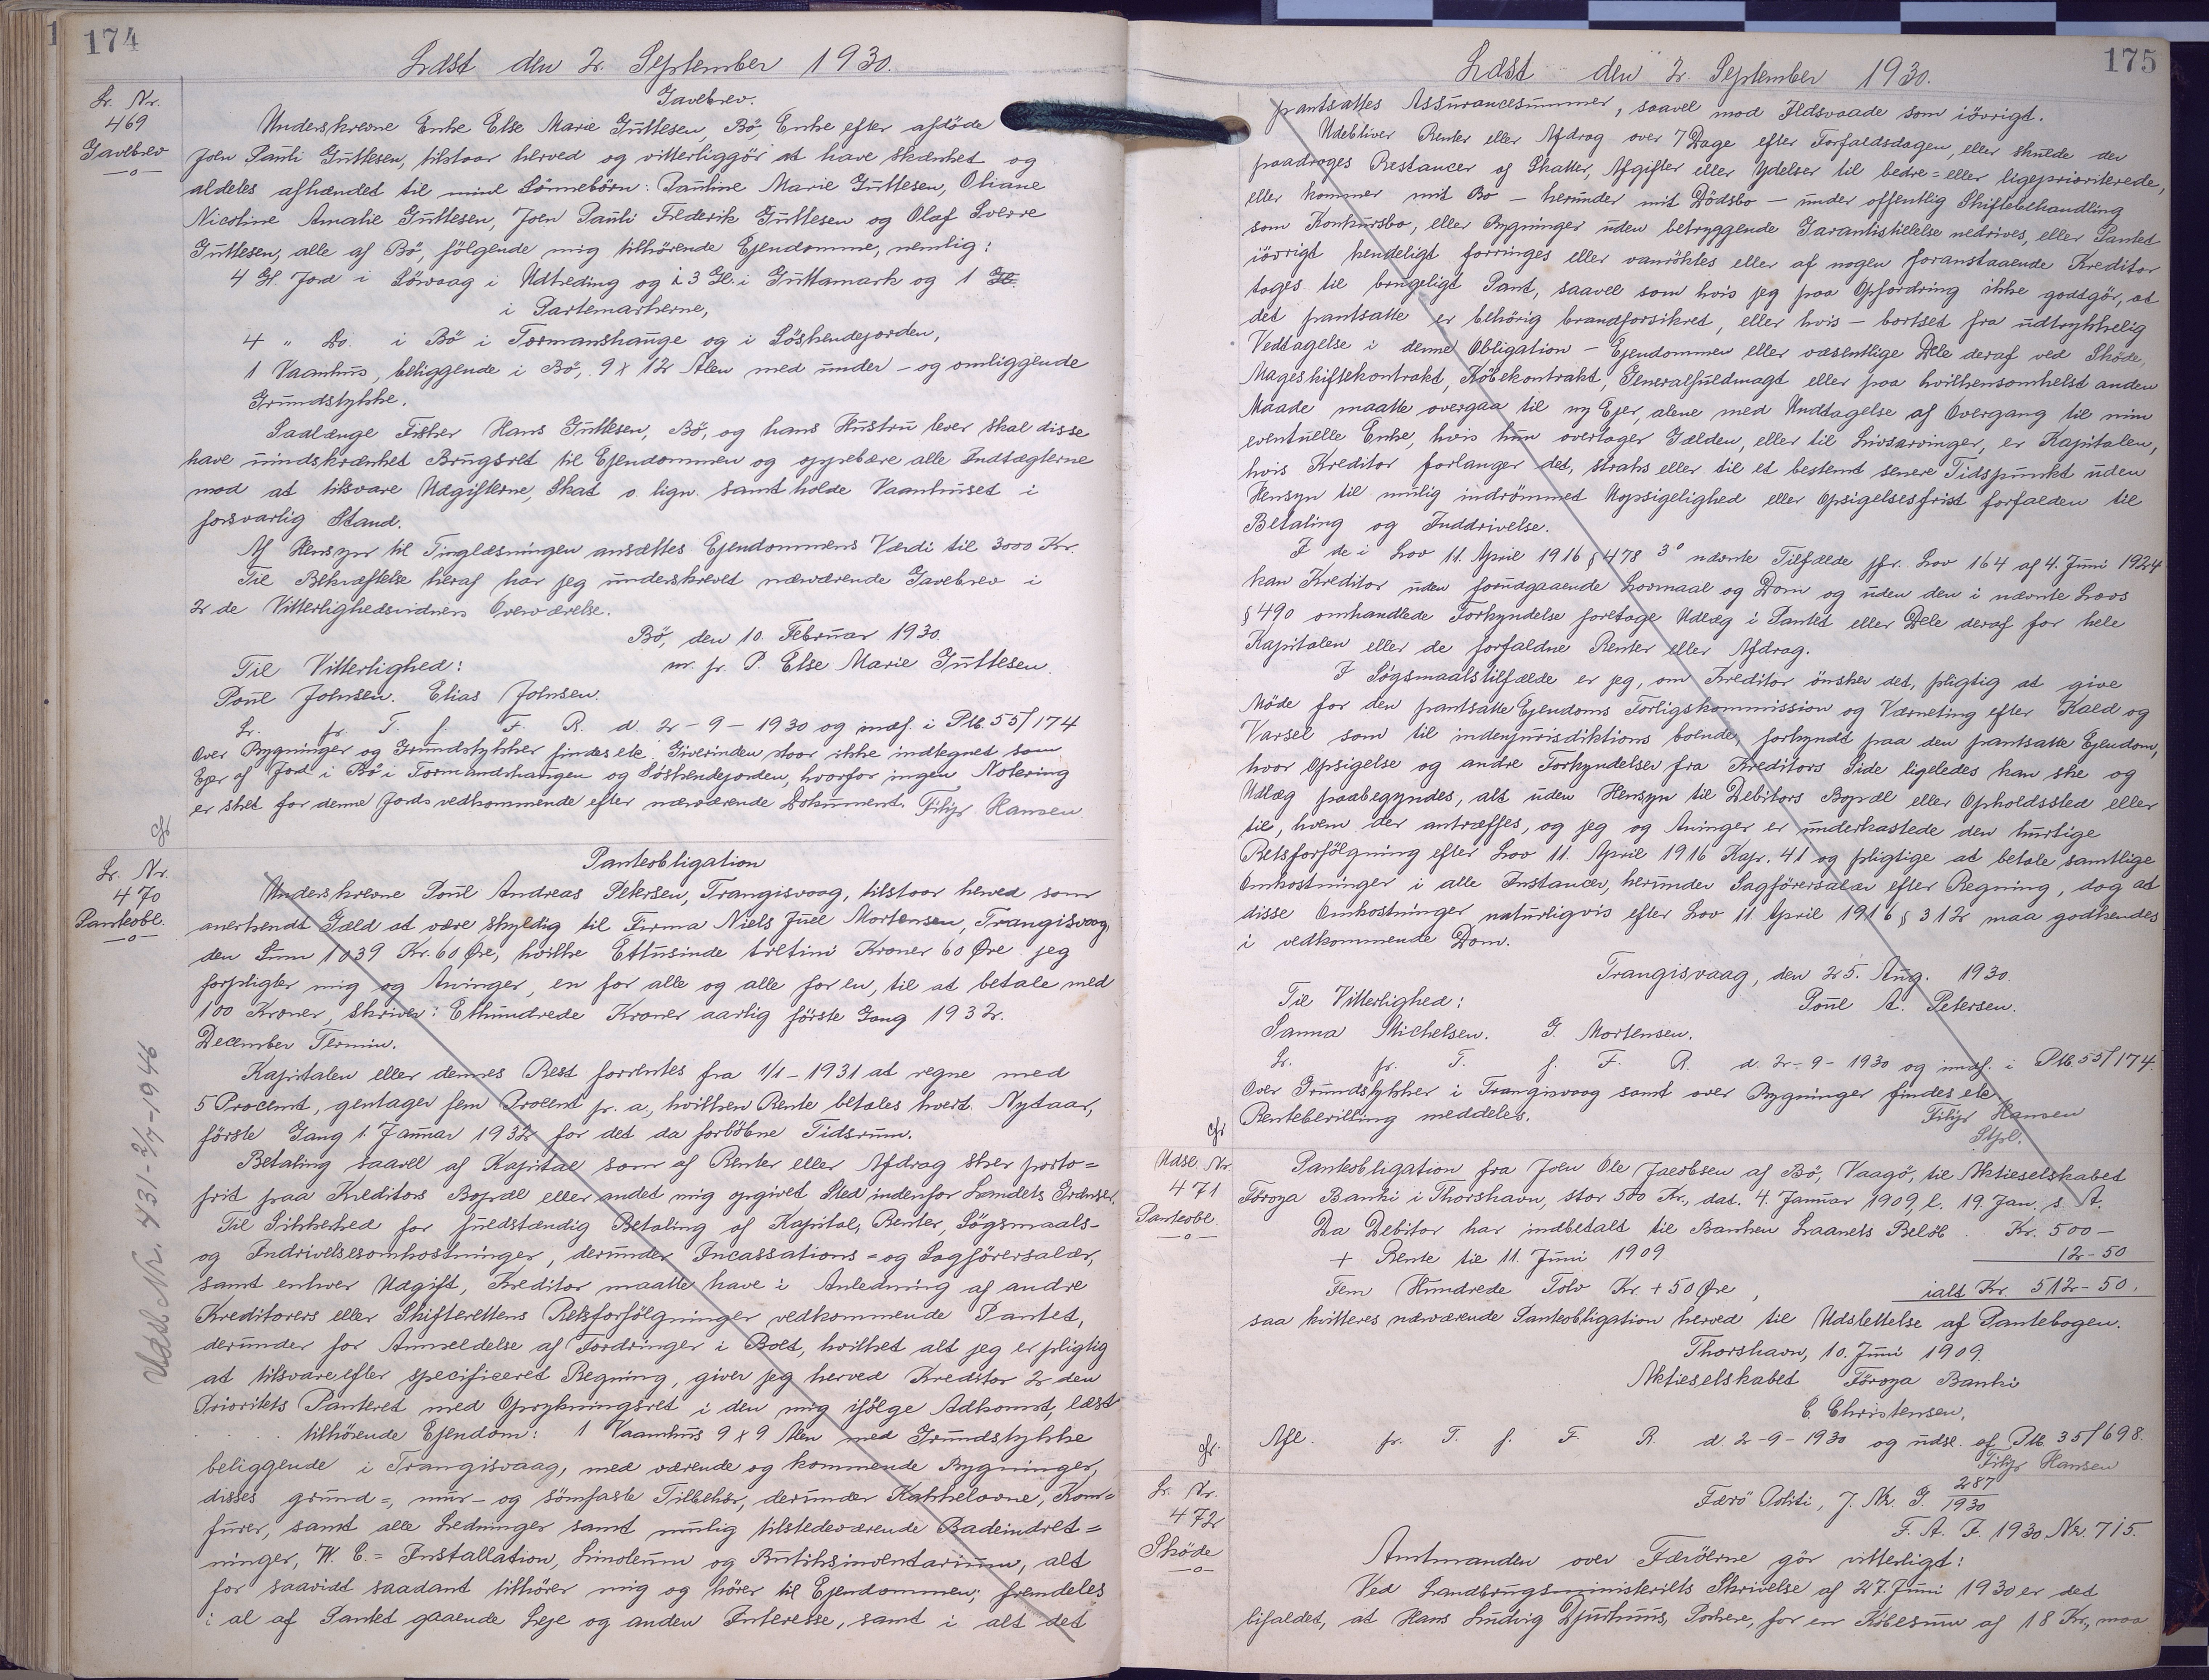 174
Læst den 2. September 1930.
L. Nr.
469
Gavebrev
Gavebrev.
Underskrevne Enke Else Marie Guttesen, Bö, Enke efter afdöde
Joen Pauli Guttesen, tilstaar herved og vitterliggör at have skænket og
aldeles afhændet til mine Sönnebörn: Pauline Marie Guttesen, Oliane
Nicoline Amalie Guttesen, Joen Pauli Frederik Guttesen og Olaf Sverre
Guttesen, alle af Bö, fölgende mig tilhörende Ejendomme, nemlig:
4 Gl. Jord i Sörvaag i Udtreding og i 3 Gl. i Guttamark og 1 Gl.
i Partemarkerne,
4 " Do. i Bö i Tormanshauge og i Söskendejorden,
1 Vaanhus, beliggende i Bö, 9 x 12 Alen med under- og omliggende
Grundstykke.
Saalænge Fisker Hans Guttesen, Bö, og hans Hustru lever skal disse
have uindskrænket Brugsret til Ejendommen og oppebære alle Indtægterne
mod at tilsvare Udgifterne, Skat o. lign. samt holde Vaanhuset i
forsvarlig Stand.
Af Hensyn til Tinglæsningen ansættes Ejendommens Værdi til 3000 Kr.
Til Bekræftelse heraf har jeg underskrevet nærværende Gavebrev i
2 de Vitterlighedsvidners Overværelse.
Bö, den 10. Februar 1930.
Til Vitterlighed: m. fr. P. Else Marie Guttesen.
Poul Johnsen. Elias Johnsen.
L. fr. T. f. F. R. d. 2-9-1930 og indf. i Ptb. 55/174
Over Bygninger og Grundstykker findes ete. Giverinden staar ikke indtegnet som
Ejer af Jord i Bö i Tormandshaugen og Söskendejorden, hvorfor ingen Notering
er sket for denne Jords vedkommende efter nærværende Dokument. Filip Hansen
cfr
L. Nr.
470
Panteobl.
Panteobligation
Underskrevne Poul Andreas Petersen, Trangisvaag, tilstaar herved som
anerkendt Gæld at være skyldig til Firma Niels Juel Mortensen, Trangisvaag,
den Sum 1039 Kr. 60 Øre, hvilke Ettusinde tretini Kroner 60 Øre jeg
forpligter mig og Arvinger, en for alle og alle for en, til at betale med
100 Kroner, skriver: Ethundrede Kroner aarlig förste Gang 1932.
December Termin.
Kapitalen eller dennes Rest forrentes fra 1/1-1931 at regne med
5 Procent, gentager fem Procent pr. a., hvilken Rente betales hvert Nytaar,
förste Gang 1. Januar 1932 for det da forlöbne Tidsrum.
Betaling saavel af Kapital som af Renter eller Afdrag sker porto=
frit paa Kreditors Bopæl eller andet mig opgivet Sted indenfor Landets Grænser.
Til Sikkerhed for fuldstændig Betaling af Kapital, Renter, Sögsmaals-
og Inddrivelsesomkostninger, derunder Incassations- og Sagförersalær,
samt enhver Udgift, Kreditor maatte have i Anledning af andre
Kreditorers eller Skifterettens Retsforfölgninger vedkommende Pantet,
derunder for Anmeldelse af Fordringer i Boet, hvilket alt jeg er pligtig
at tilsvare efter specificeret Regning, giver jeg herved Kreditor 2 den
Prioritets Panteret med Oprykningsret i den mig ifölge Adkomst, læst
tilhörende Ejendom: 1 Vaanhus 9 x 9 Alen med Grundstykke
beliggende i Trangisvaag, med værende og kommende Bygninger,
disses grund=, mur- og sömfaste Tilbehör, derunder Kakkelovne, Kom=
furer, samt alle Ledninger samt mulig tilstedeværende Badeindret=
ninger, W. C.= Installation, Linoleum og Butiksinventarium, alt
for saavidt saadant tilhörer mig og hörer til Ejendommen; fremdeles
i al af Pantet gaaende Leje og anden Interesse, samt i alt det
Udsl. Nr. 431-2/7-1946
175
Læst den 2. September 1930.
pantsattes Assurancesummer, saavel mod Ildsvaade som iövrigt.
Udebliver Renter eller Afdrag over 7 Dage efter Forfaldsdagen, eller skulde der
paadrages Restancer af Skatter, Afgifter eller Ydelser til bedre= eller ligeprioriterede,
eller kommer mit Bo - herunder mit Dödsbo - under offentlig Skiftebehandling
som Konkursbo, eller Bygninger uden betryggende Garantistillelse nedrives, eller Pantet
iövrigt kendeligt forringes eller vanrögtes eller af nogen foranstaaende Kreditor
tages til brugeligt Pant, saavel som hvis jeg paa Opfordring ikke godtgör, at
det pantsatte er behörig brandforsikret, eller hvis - bortset fra udtrykkelig
Vedtagelse i denne Obligation - Ejendommen eller væsentlige Dele deraf ved Sköde,
Mageskiftekontrakt, Köbekontrakt, Generalfuldmagt eller paa hvilkensomhelst anden
Maade maatte overgaa til ny Ejer, alene med Undtagelse af Overgang til min
eventuelle Enke, hvis hun overtager Gælden, eller til Livsarvinger, er Kapitalen,
hvis Kreditor forlanger det, straks eller til et bestemt senere Tidspunkt uden
Hensyn til mulig indrömmet Uopsigelighed eller Opsigelsesfrist forfalden til
Betaling og Inddrivelse.
I de i Lov 11. April 1916 § 478 3° nævnte Tilfælde jfr. Lov 164 af 4. Juni 1924
kan Kreditor uden forudgaaende Lovmaal og Dom og uden den i nævnte Lovs
§ 490 omhandlede Forkyndelse foretage Udlæg i Pantet eller Dele deraf for hele
Kapitalen eller de forfaldne Renter eller Afdrag.
I Sögsmaalstilfælde er jeg, om Kreditor önsker det, pligtig at give
Möde for den pantsatte Ejendoms Forligskommission og Værneting efter Kald og
Varsel som til indenjurisdiktions boende, forkyndt paa den pantsatte Ejendom,
hvor Opsigelse og andre Forkyndelser fra Kreditors Side ligeledes kan ske og
Udlæg paabegyndes, alt uden Hensyn til Debitors Bopæl eller Opholdssted eller
til, hvem der antræffes, og jeg og Arvinger er underkastede den hurtige
Retsforfölgning efter Lov 11. April 1916 Kap. 41 og pligtige at betale samtlige
Omkostninger i alle Instancer, herunder Sagförersalær efter Regning, dog at
disse Omkostninger naturligvis efter Lov 11. April 1916 § 312 maa godkendes
i vedkommende Dom.
Trangisvaag, den 25. Aug. 1930.
Til Vitterlighed: Poul A. Petersen.
Sanna Michelsen. J. Mortensen.
L. fr. T. f. F. R. d. 2-9-1930 og indf. i Ptb. 55/174.
Over Grundstykker i Trangisvaag samt over Bygninger findes ete
Rentebevilling meddeles. Filip Hansen
Stpl.
cfr
Udsl. Nr.
471
Panteobl.
Panteobligation fra Joen Ole Jacobsen af Bö, Vaagö, til Aktieselskabet
Föroya Banki i Thorshavn, stor 500 Kr., dat. 4 Januar 1909, l. 19. Jan. s. A.
Da Debitor har indbetalt til Banken Laanets Belöb . Kr. 500 -
+ Rente til 11. Juni 1909 12-50
Fem Hundrede Tolv Kr. + 50 Øre, ialt Kr. 512-50.
saa kvitteres nærværende Panteobligation herved til Udslettelse af Pantebogen.
Thorshavn, 10. Juni 1909.
Aktieselskabet Föroya Banki
C. Christensen.
cfr.
Afl. fr. T. f. F. R. d 2-9-1930 og udsl. af Ptb. 35/698.
Filip Hansen
L. Nr.
472
Sköde
Færö Politi, J. Nr. G. 287/1930
F. A. J. 1930 Nr. 715.
Amtmanden over Færöerne gör vitterligt:
Ved Landbrugsministeriets Skrivelse af 27. Juni 1930 er det
bifaldet, at Hans Ludvig Djurhuus, Porkere, for en Köbesum af 18 Kr., maa